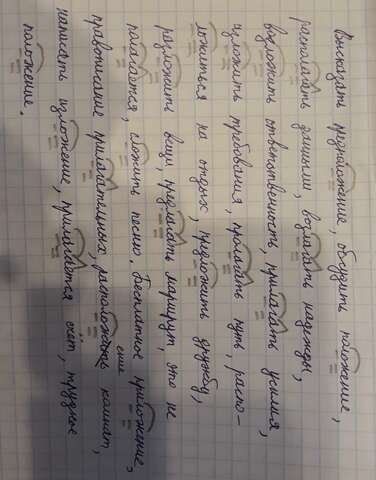 Высказать предположение, обсудить положение,
располагать данными, возлагать надежды,
возложить ответственность, прилагать усилия,
изложить требования, пролагать путь, распо-
ложиться на отдых, предложить дружбу,
разложить вещи, предлагать маршрут, это не
полагается, сложить песню. Бесплатное приложение,
правописание прилагательных, расположение комнат,
написать изложение, прилагается счёт, трудное
положение.